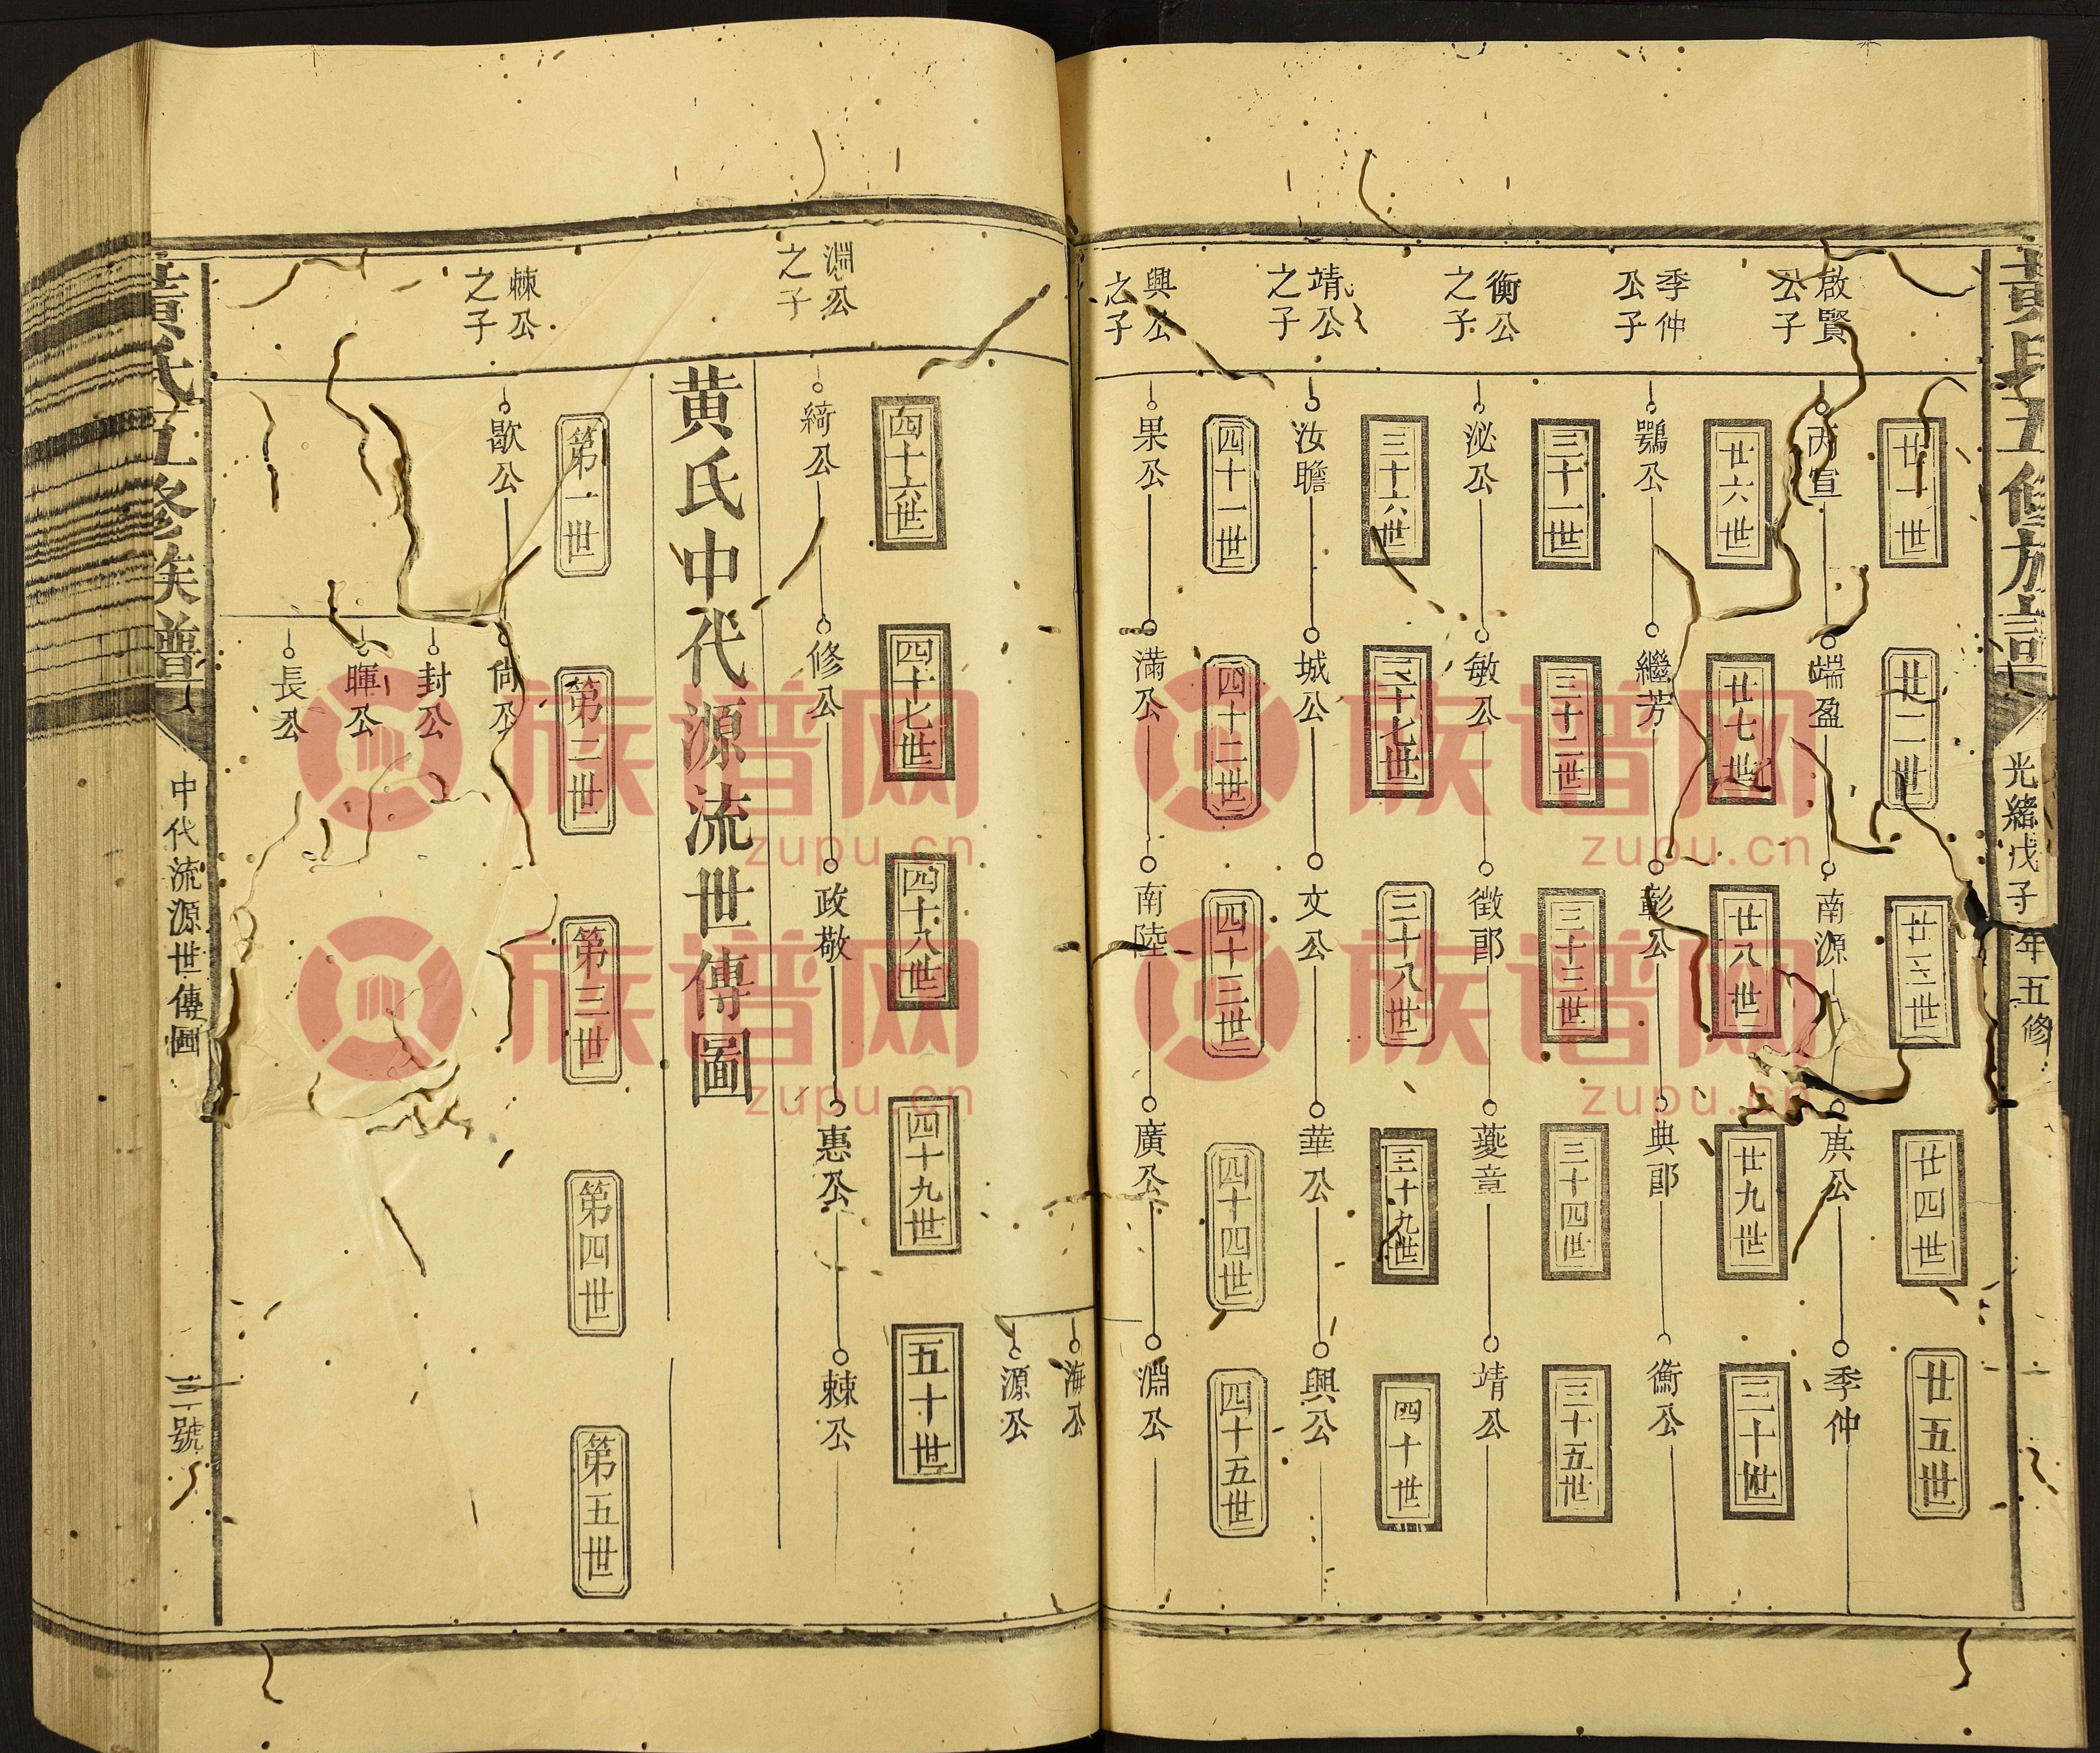 黃氏五修族譜
光緒戊子年五修
廿一世
廿二世
廿三世
廿四世
廿五世
啟賢公子
丙宣
端盈
南源
庚公
季仲
廿六世
廿七世
廿八世
廿九世
三十世
季仲公子
鶚公
繼芳
彰公
典郎
衡公
三十一世
三十二世
三十三世
三十四世
三十五世
衡公之子
泌公
敏公
徵郎
夔章
靖公
三十六世
三十七世
三十八世
三十九世
四十世
靖公之子
汝瞻
城公
文公
華公
興公
四十一世
四十二世
四十三世
四十四世
四十五世
興公之子
果公
滿公
南陸
廣公
淵公
海公
源公
四十六世
四十七世
四十八世
四十九世
五十世
淵公之子
綺公
修公
政敬
惠公
棘公
黄氏中代源流世傳圖
第一世
第二世
第三世
第四世
第五世
棘公之子
歇公
尚公
封公
暉公
長公
黃氏五修族譜
中代流源世傳圖
三號
族谱网
zupu.cn
族谱网
zupu.cn
族谱网
zupu.cn
族谱网
zupu.cn